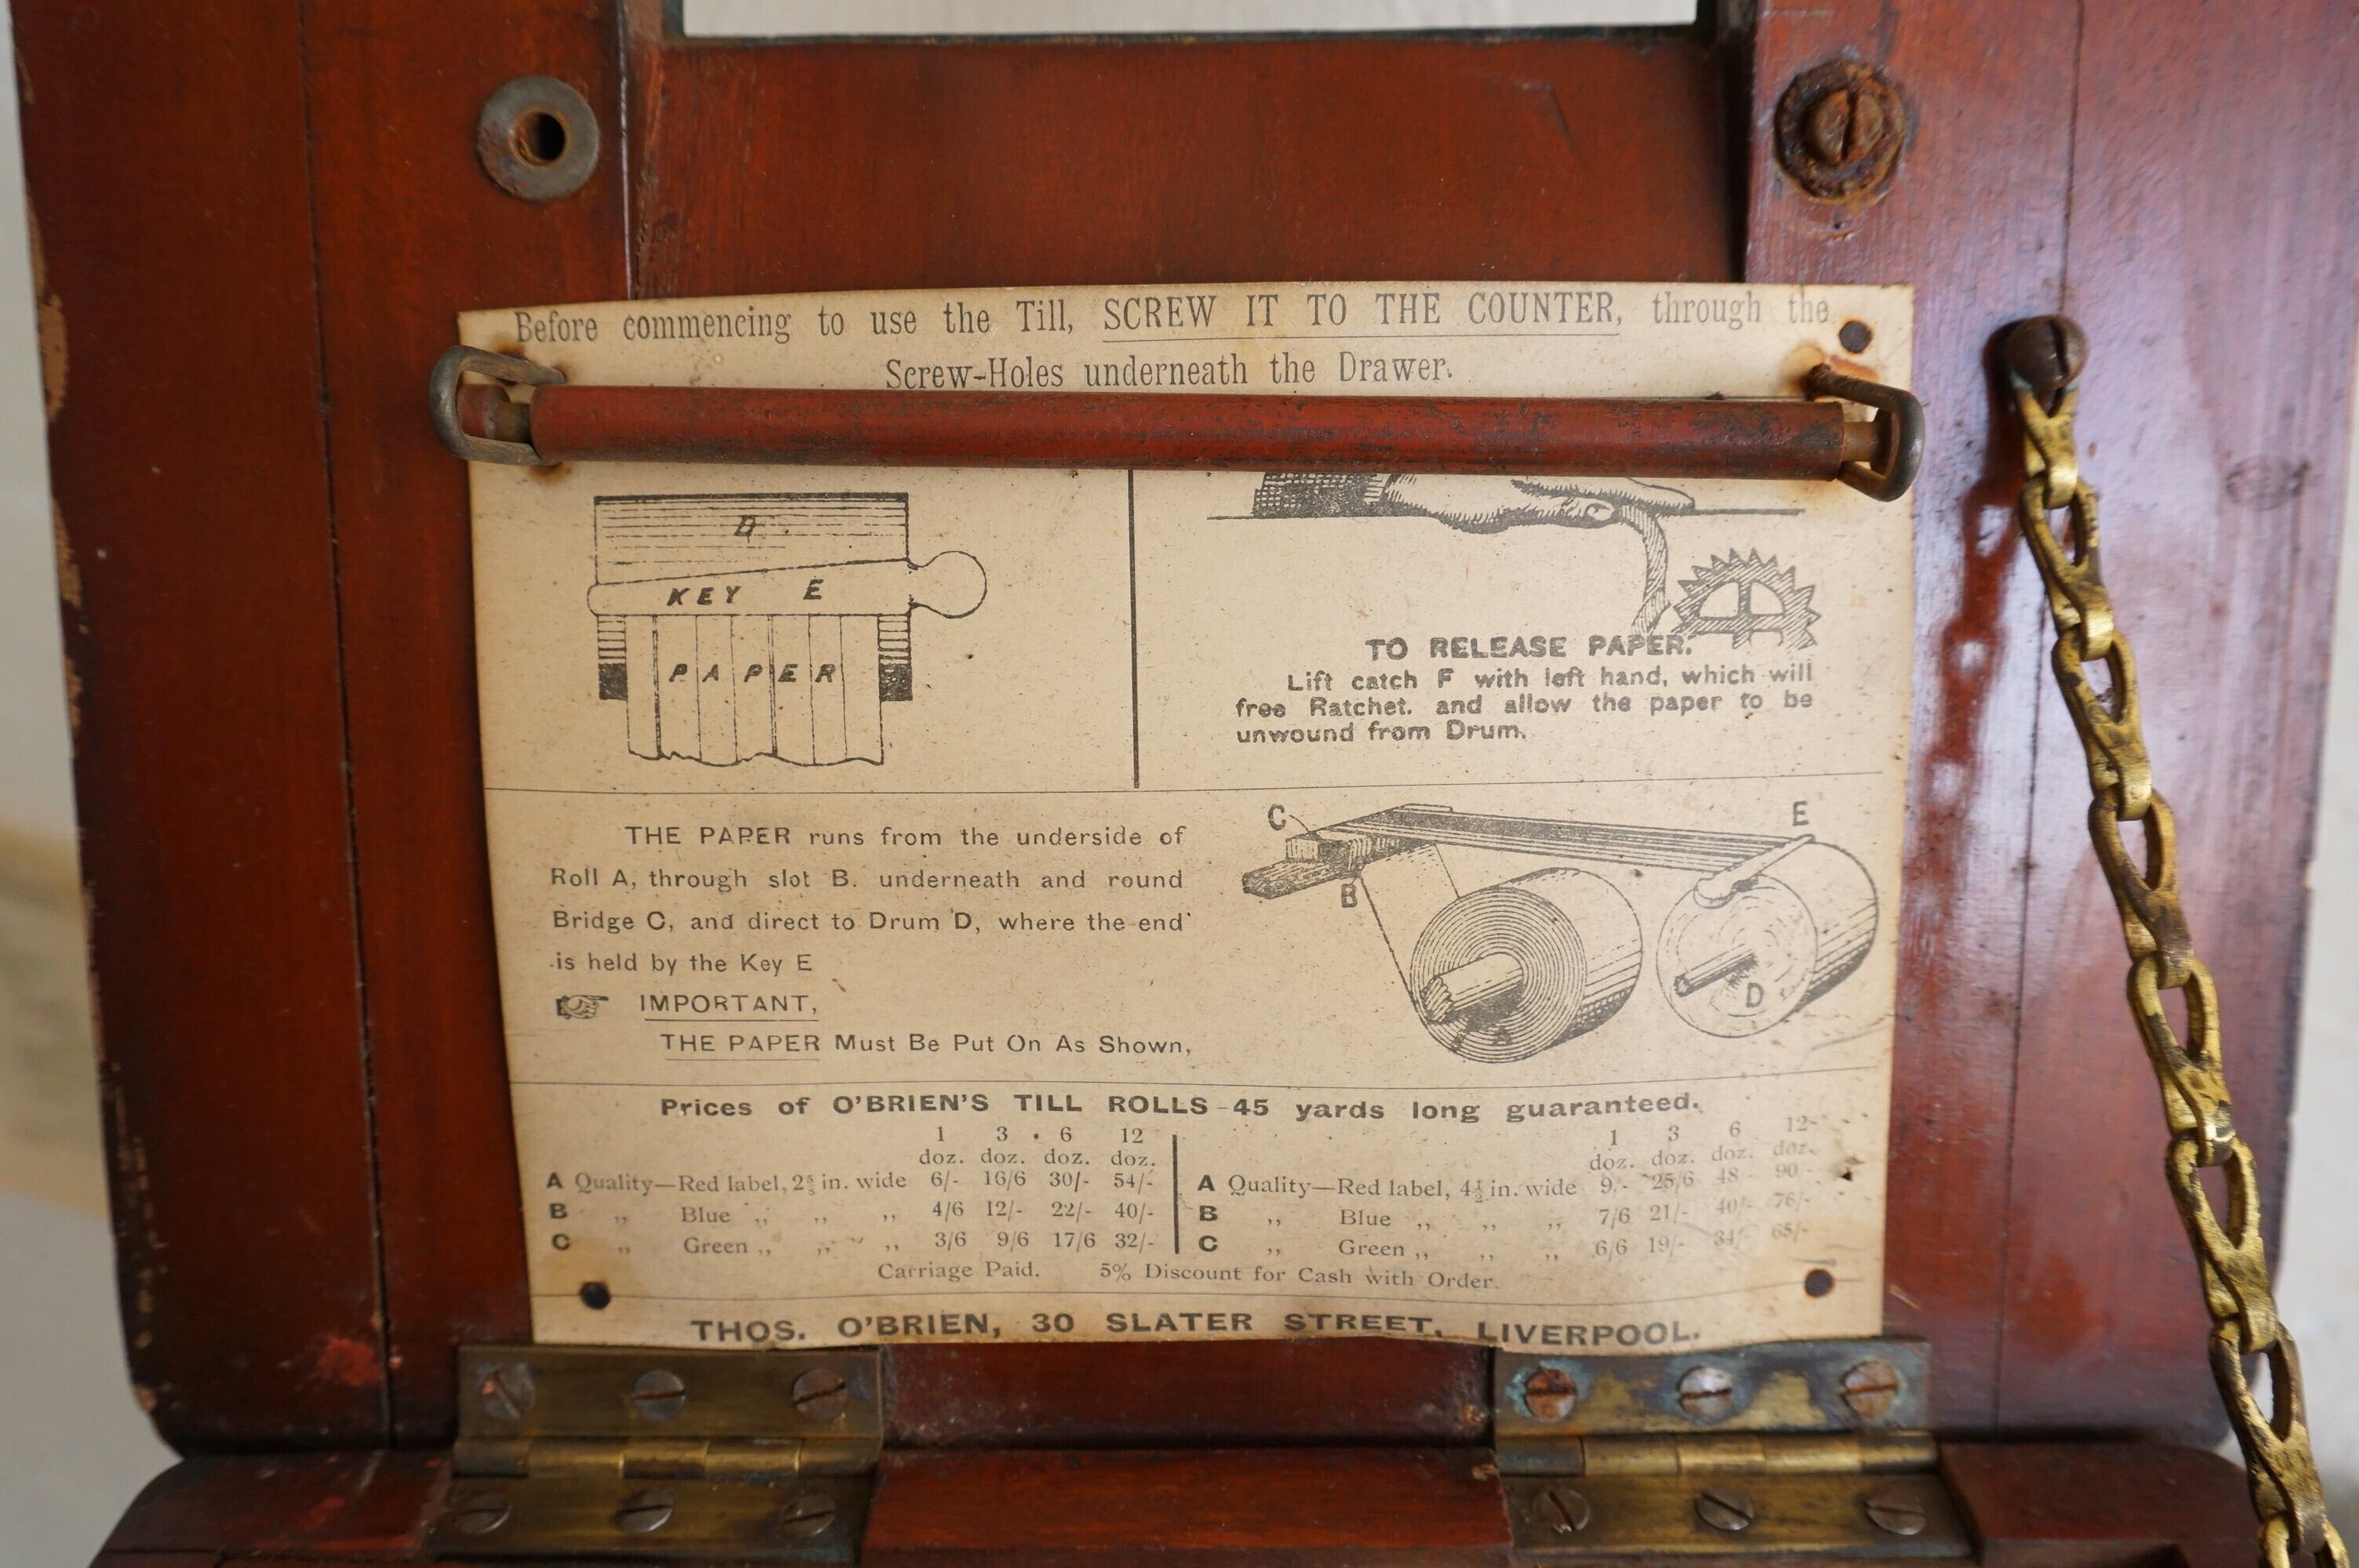 Before commencing to use the Till, SCREW IT TO THE COUNTER, through the
Screw-Holes underneath the Drawer.
D
KEY E
PAPER
TO RELEASE PAPER.
Lift catch F with left hand, which will
free Ratchet. and allow the paper to be
unwound from Drum.
THE PAPER runs from the underside of
Roll A, through slot B. underneath and round
Bridge C, and direct to Drum D, where the end
is held by the Key E
☞ IMPORTANT,
THE PAPER Must Be Put On As Shown,
C
E
B
D
A
Prices of O'BRIEN'S TILL ROLLS-45 yards long guaranteed.
1 3 6 12
doz. doz. doz. doz.
A Quality—Red label, 2⅝ in. wide 6/- 16/6 30/- 54/-
B ,, Blue ,, ,, ,, 4/6 12/- 22/- 40/-
C ,, Green ,, ,, ,, 3/6 9/6 17/6 32/-
1 3 6 12
doz. doz. doz. doz.
A Quality—Red label, 4½ in. wide 9/- 25/6 48/- 90/-
B ,, Blue ,, ,, ,, 7/6 21/- 40/- 76/-
C ,, Green ,, ,, ,, 6/6 19/- 34/- 65/-
Carriage Paid. 5% Discount for Cash with Order.
THOS. O'BRIEN, 30 SLATER STREET, LIVERPOOL.